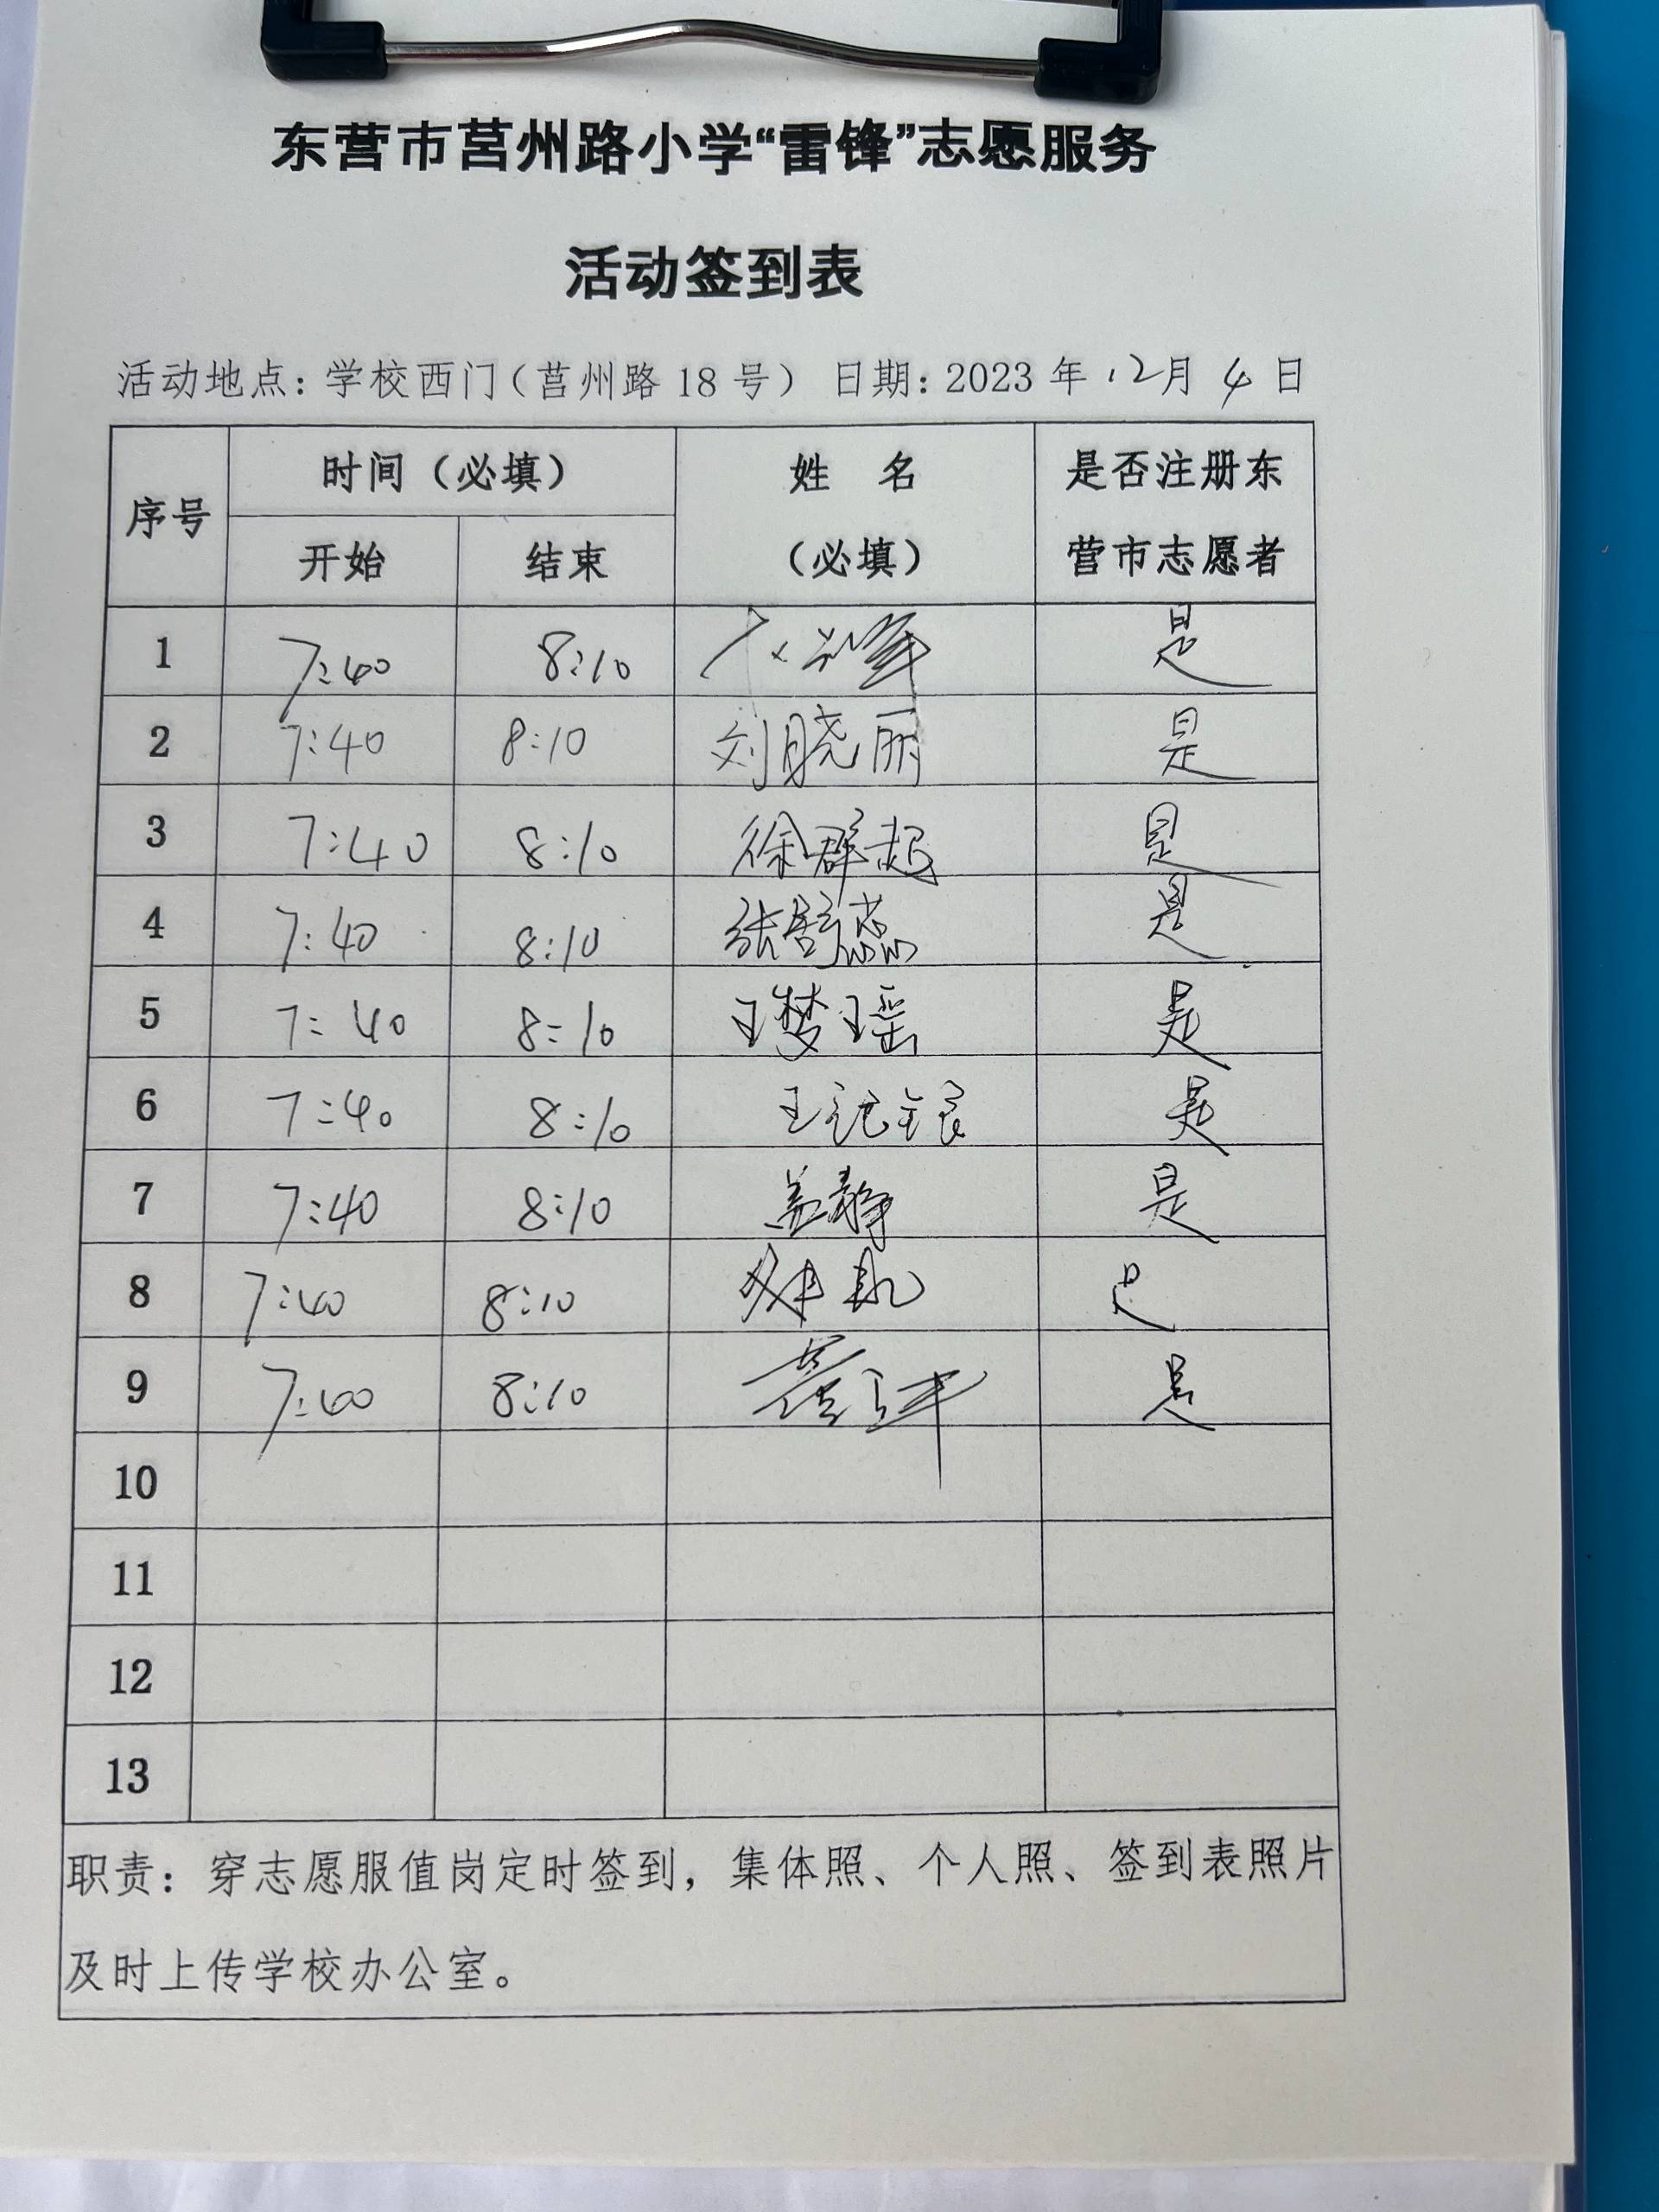 东营市莒州路小学“雷锋”志愿服务
活动签到表
活动地点：学校西门（莒州路 18 号） 日期：2023 年 12月 4 日
序号 时间（必填） 姓 名 是否注册东
开始 结束 （必填） 营市志愿者
1 7:40 8:10 是
2 7:40 8:10 刘晓丽 是
3 7:40 8:10 徐群起 是
4 7:40 8:10 张 蕊 是
5 7:40 8:10 王梦瑶 是
6 7:40 8:10 王 银 是
7 7:40 8:10 盖静 是
8 7:40 8:10 是
9 7:40 8:10 是
10
11
12
13
职责：穿志愿服值岗定时签到，集体照、个人照、签到表照片
及时上传学校办公室。